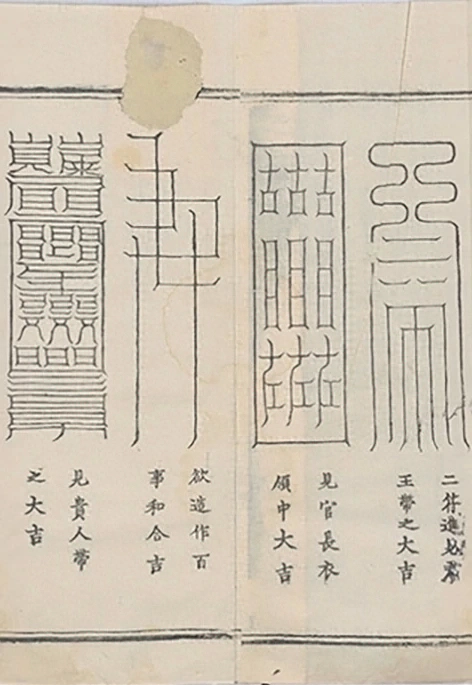 二符進見
王帶之大吉
見官長衣
領中大吉
欲造作百
事和合吉
見貴人帶
之大吉